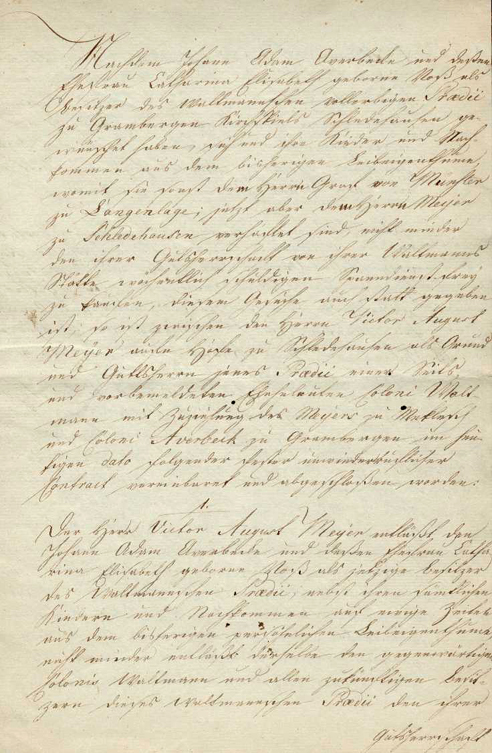 Nachdem Johann Adam Averbecke und deßen
Ehefrau Catharina Elisabeth geborne Voß als
Besitzer des Waltmannschen vollerbigen Prædii
zu Grambergen Kirchspiels Schledehausen ge-
wünschet haben, sich und ihre Kinder und Nach-
kommen aus dem bisherigen Leibeigenthume,
womit sie sonst dem Herrn Graf von Münster
zu Langenlage, jetzt aber dem Herrn Meyer
zu Schledehausen verhaftet sind, nicht minder
den ihrer Gutsherrschaft von ihrer Waltmanns
Stätte wöchentlich schuldigen Spanndienst frey
zu kaufen, diesem Gesuche auch statt gegeben
ist, so ist zwischen dem Herrn Victor August
Meyer zu Schledehausen als Grund
und Gutsherrn jenes Prædii einer Seits
und vorbemeldeten Eheleuten Coloni Walt
mann mit Zuziehung des Meyers zu
und Coloni Averbeck zu Grambergen im heu-
tigen dato folgender fester unwiederruflicher
Contract vereinbaret und abgeschloßen worden:
1.
Der Herr Victor August Meyer entläßt den
Johann Adam Averbecke und deßen Ehefrau Catha
rina Elisabeth geborne Voß als jetzige Besitzer
des Waltmannschen Prædii, nebst ihren sämtlichen
Kindern und Nachkommen auf ewige Zeiten
aus dem bisherigen persöhnlichen Leibeigenthume
nicht minder entläßt derselbe den gegenwärtigen
Colonis Waltmann und allen zukünftigen Besit-
zern dieses Waltmannschen Prædii den ihrer
Gutsherrschaft